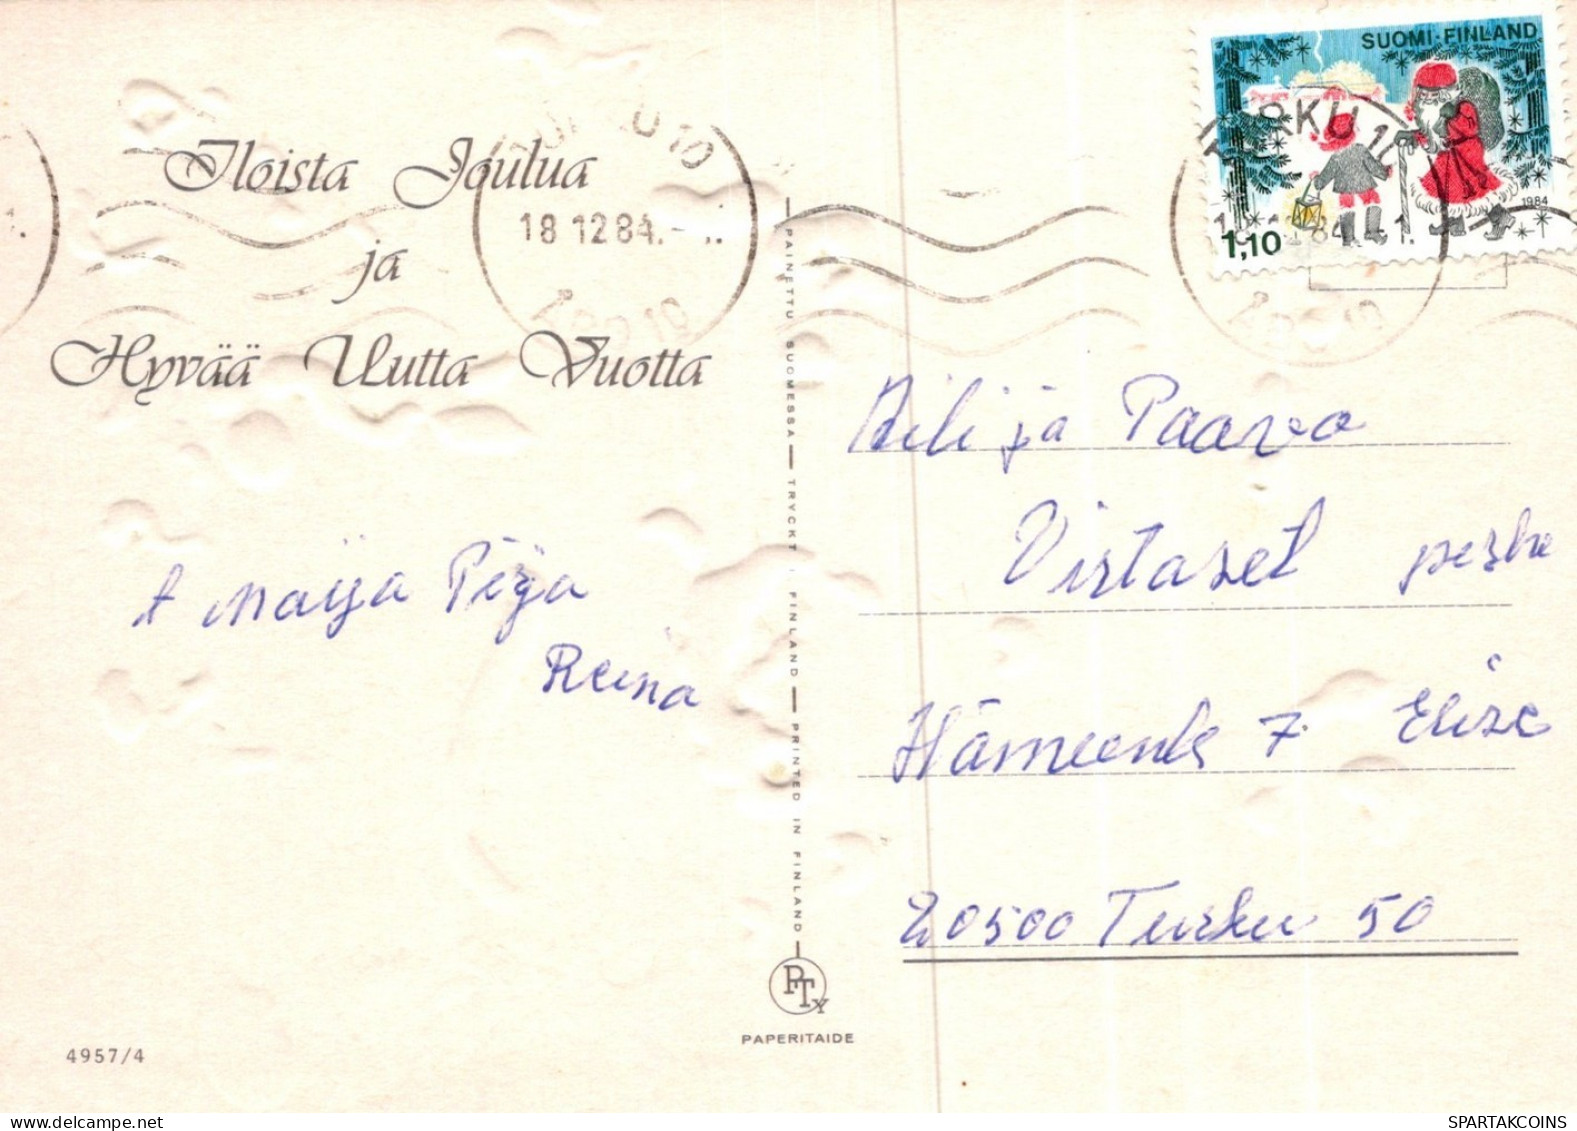 SUOMI-FINLAND
TURKU 10
1984
1,10
TURKU 10
18.12.84.-1.
ÅBO 10
Iloista Joulua
ja
Hyvää Uutta Vuotta
PAINETTU SUOMESSA — TRYCKT I FINLAND — PRINTED IN FINLAND
Maija Pirjo
Reina
ja Paavo
Virtaset
Hämeenk 7
20500 Turku 50
PTy
PAPERITAIDE
4957/4
SPARTAKCOINS